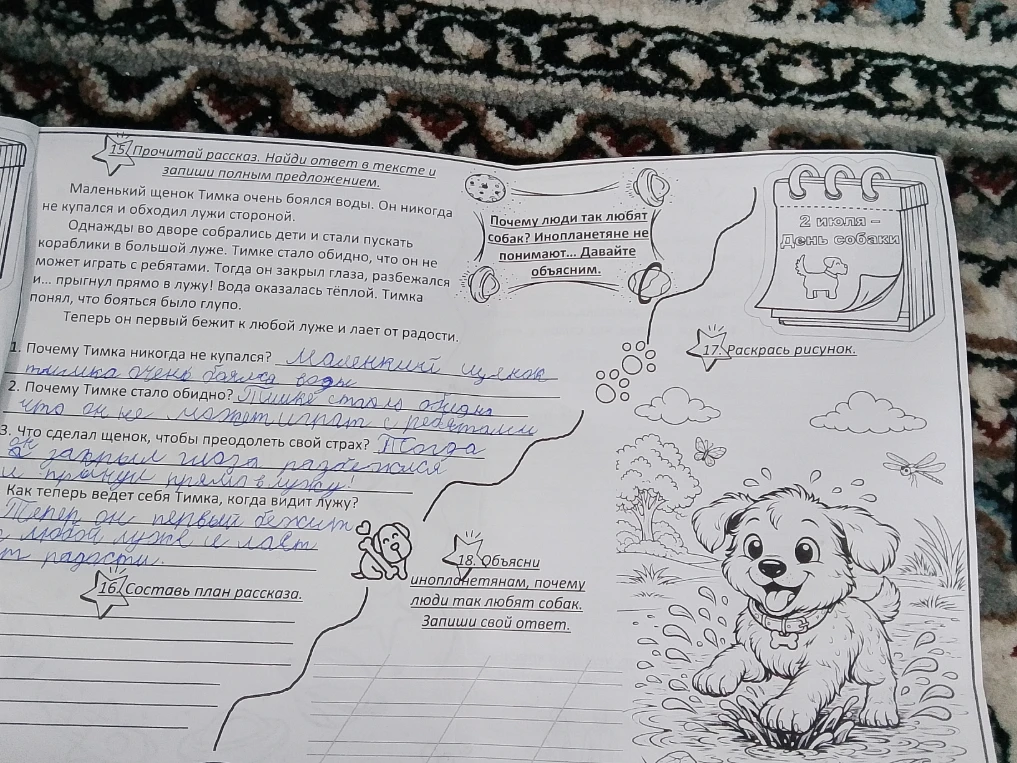 15. Прочитай рассказ. Найди ответ в тексте и
запиши полным предложением.
Маленький щенок Тимка очень боялся воды. Он никогда
не купался и обходил лужи стороной.
Однажды во дворе собрались дети и стали пускать
кораблики в большой луже. Тимке стало обидно, что он не
может играть с ребятами. Тогда он закрыл глаза, разбежался
и... прыгнул прямо в лужу! Вода оказалась тёплой. Тимка
понял, что бояться было глупо.
Теперь он первый бежит к любой луже и лает от радости.
1. Почему Тимка никогда не купался? Маленкий щенок
тимка очень боялса воды
2. Почему Тимке стало обидно? Тимке стало обидно
что он не может играт с ребятами
3. Что сделал щенок, чтобы преодолеть свой страх? Тогда
он закрыл глаза разбежился
и прямо в лужу!
Как теперь ведет себя Тимка, когда видит лужу?
Тепер он первый бежит
любой луже и лает
от радости.
16. Составь план рассказа.
Почему люди так любят
собак? Инопланетяне не
понимают... Давайте
объясним.
18. Объясни
инопланетянам, почему
люди так любят собак.
Запиши свой ответ.
2 июля –
День собаки
17. Раскрась рисунок.